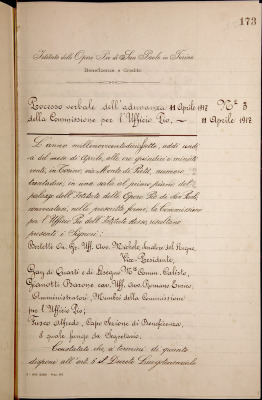 173
Istituto delle Opere Pie di San Paolo in Torino
Beneficenza e Credito
Processo verbale dell'adunanza 11 Aprile 1918 N° 3
della Commissione per l'Ufficio Pio. — 11 Aprile 1918
L'anno millenovecentodiciotto, addì undi
ci del mese di Aprile, alle ore quindici e minuti
venti, in Torino, via Monte di Pietà, numero
trentadue, in una sala al primo piano del
palazzo dell'Istituto delle Opere Pie di San Paolo,
convocatasi, nelle prescritte forme, la Commissione
per l'Ufficio Pio dell'Istituto stesso, risultano
presenti i Signori:
Bertetti Cav. Gr. Uff. Avv. Michele, Senatore del Regno,
Vice-Presidente,
Gay di Quarti e di Lesegno Comm. Calisto,
Gianotti Barone cav. Uff. Avv. Romano Enrico,
Amministratori, Membri della Commissione
per l'Ufficio Pio;
Fusco Alfredo, Capo Sezione di Beneficenza,
il quale funge da Segretario.
Constatato che, a termini di quanto
dispone all'art. 5 il Decreto Luogotenenziale